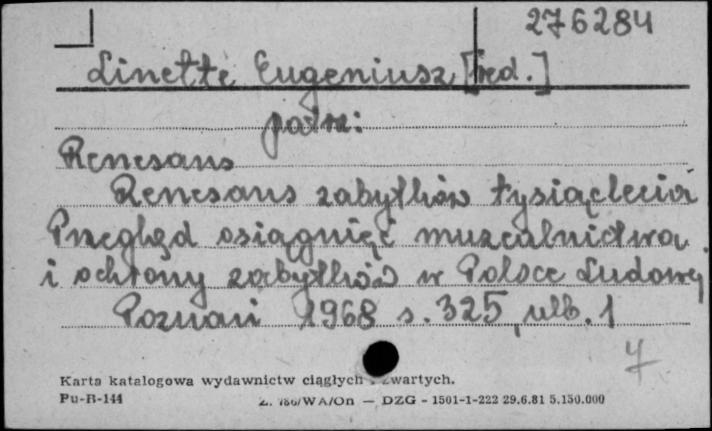 276284
Linette Eugeniusz [red.]
patrz:
Renesans
Renesans zabytków tysiąclecia
Przegląd osiągnięć muzealnictwa
i ochrony zabytków w Polsce Ludowej
Poznań 1968 s. 325, nlb. 1
4
Karta katalogowa wydawnictw ciągłych i zwartych.
Pu-B-144 Z. 780/WA/On — DZG - 1501-1-222 29.6.81 5.150.000